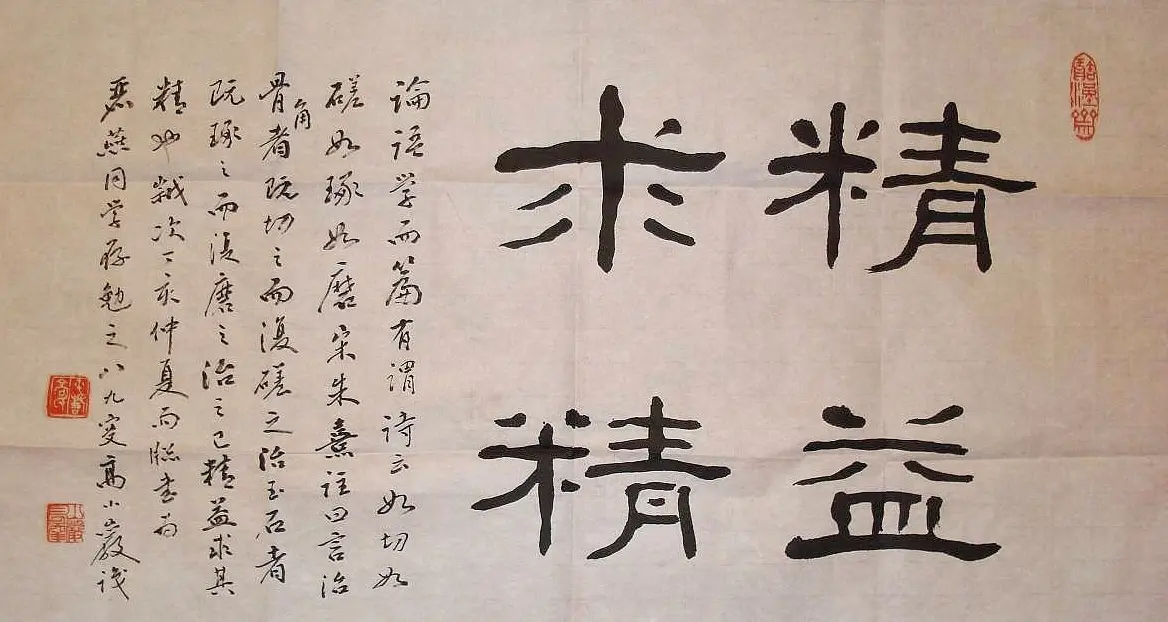 精益
求精
論語学而篇有謂詩云如切如
磋如琢如磨宋朱熹註曰言治
骨角者既切之而復磋之治玉石者
既琢之而復磨之治之已精益求其
精也歲次丁亥仲夏雨牕書為
燕同学存勉之八九叟高小巖識